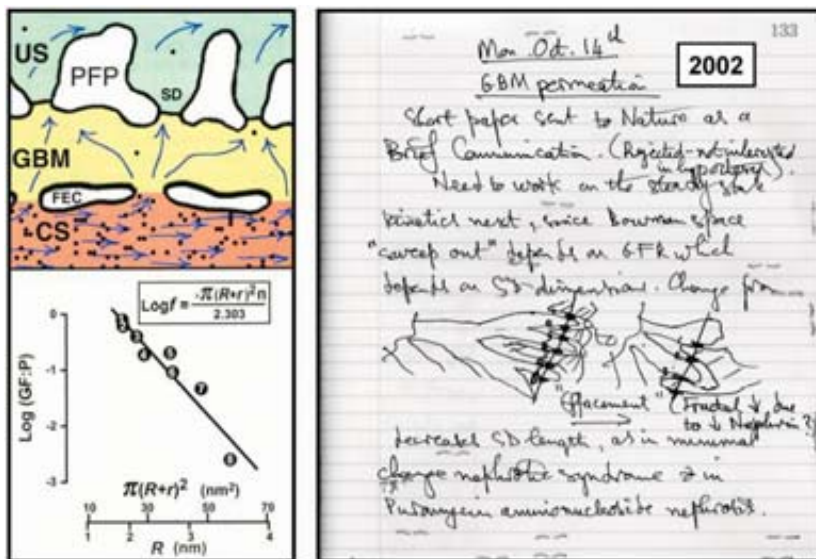 US
PFP
SD
GBM
FEC
CS
Log f = -π(R+r)²n
2.303
Log (GF:P)
0
-1
-2
-3
7
π(R+r)² (nm²)
10 30 50 70
1 2 3 4
R (nm)
133
Mon Oct. 14th
2002
GBM permeation
Short paper sent to Nature as a
Brief Communication. (Rejected - not interested
in hypotheses).
Need to work on the steady state
kinetics next, since Bowman space
"sweep out" depends on GFR which
depends on SD dimensions. Change from
"Effacement" (Fractal ↓ due
to ↓ Nephrin?)
decreases SD length, as in minimal
change nephrotic syndrome & in
Puromycin aminonucleoside nephrosis.